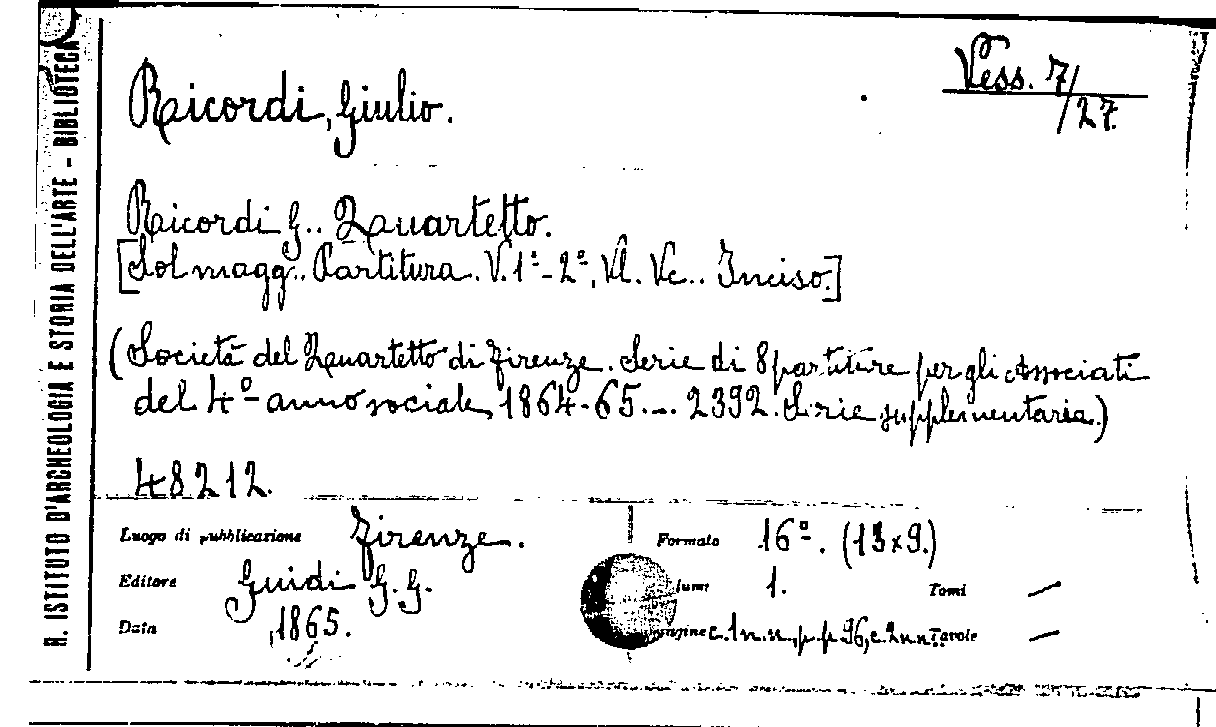 R. ISTITUTO D'ARCHEOLOGIA E STORIA DELL'ARTE - BIBLIOTECA
Vess. 7/27.
Ricordi, Giulio.
Ricordi G.. Quartetto.
[Sol magg.. Partitura. V. 1º-2º, Vl. Vc.. Inciso.]
(Società del Quartetto di Firenze. Serie di 8 partiture per gli Associati
del 4º anno sociale, 1864-65... 2392. Serie supplementaria.)
48212.
Luogo di pubblicazione Firenze.
Formato 16º. (13x9.)
Editore Guidi G.G.
lumi 1. Tomi —
Data 1865.
agine c.1n.n., p.p 96, c.2n.n. Tavole —